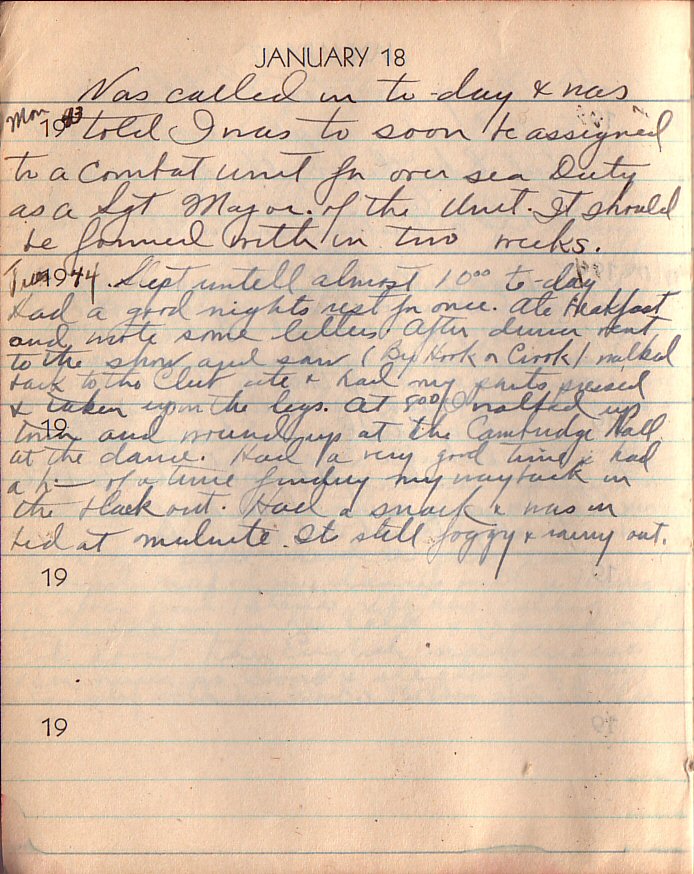 JANUARY 18
Was called in to-day & was
Mon 1943 told I was to soon be assigned
to a Combat unit for over sea Duty
as a Sgt Major of the Unit. It should
be formed with in two weeks.
Tues 1944. Slept untill almost 10⁰⁰ to-day
Had a good nights rest for once. Ate Breakfast
and wrote some letters. After dinner went
to the show and saw (By Hook or Crook) walked
back to the Club ate & had my pants pressed
& taken up on the legs. At 8⁰⁰ I walked up
19 town and wound up at the Cambridge Hall
at the dance. Had a very good time & had
a h— of a time finding my way back in
the black out. Had a snack & was in
bed at midnite. Its still foggy & rainy out.
19
19